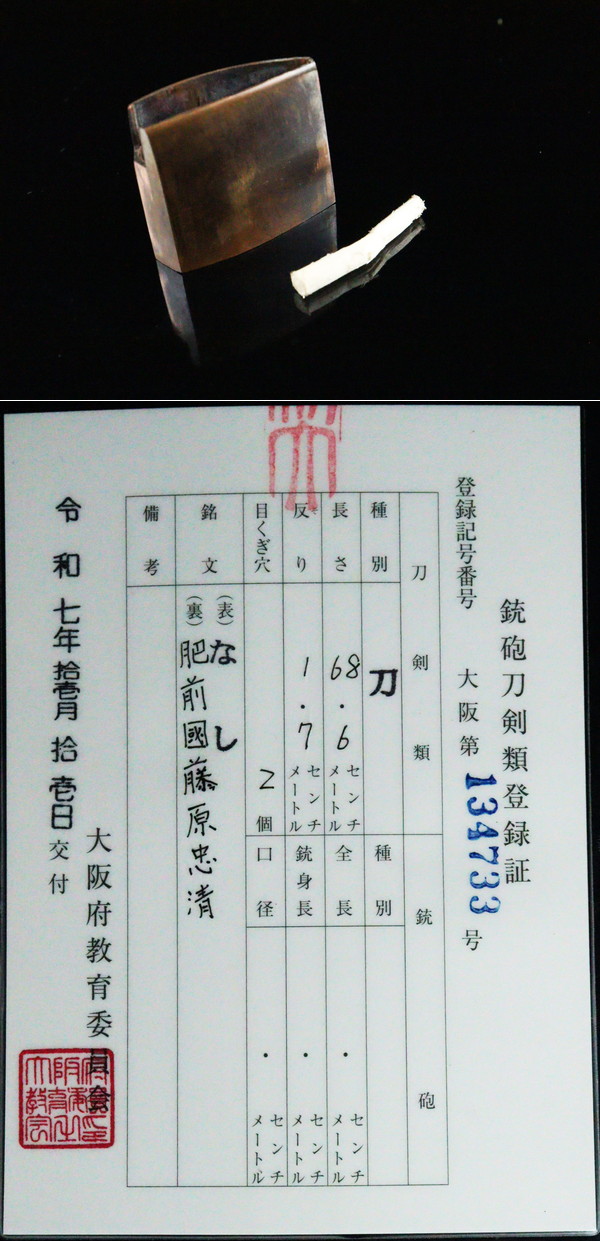 銃砲刀剣類登録証
登録記号番号 大阪第 134733 号
刀剣類 銃砲
種別 刀 種別
長さ 68.6 センチメートル 全長 ・ センチメートル
反り 1.7 センチメートル 銃身長 ・ センチメートル
目くぎ穴 2個 口径 ・ センチメートル
銘文 (表) なし
(裏) 肥前國藤原忠清
備考
令和七年拾壱月拾壱日交付
大阪府教育委員会